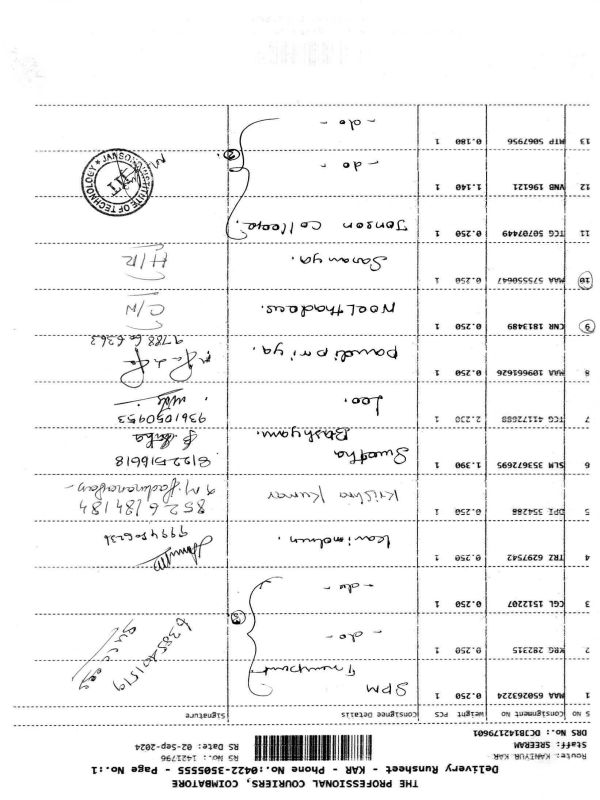 THE PROFESSIONAL COURIERS, COIMBATORE
Delivery Runsheet - KAR - Phone No.:0422-3505555 - Page No.:1
Route: KANIYUR KAR
Staff: SREERAM
DRS No.: DCJB142179601
RS No.: 1421796
RS Date: 02-Sep-2024
S NO Consignment NO Weight PCS Consignee Details Signature
1 MAA 650263224 0.250 1 SPM Transport
2 KRG 282315 0.250 1 - do -
3 CGL 1512207 0.250 1 - do -
4 TRZ 6297542 0.250 1
5 DPI 354288 0.250 1 Krishna Kumar
8526184184
6 SLM 353672695 1.390 1 Swatha
Bashyam. 8122516618
7 TCG 41172688 2.230 1 Leo. 9361050953
8 MAA 109661626 0.250 1 pandipriya.
9 CNR 1813489 0.250 1 Noel thadaeus. C/N
10 MAA 575550647 0.250 1 Saranya. H/R
11 TCG 50707449 0.250 1 Jonson College.
12 VNB 196121 1.140 1 - do -
13 MTP 5067956 0.180 1 - do -
JANSONS INSTITUTE OF TECHNOLOGY
JIT